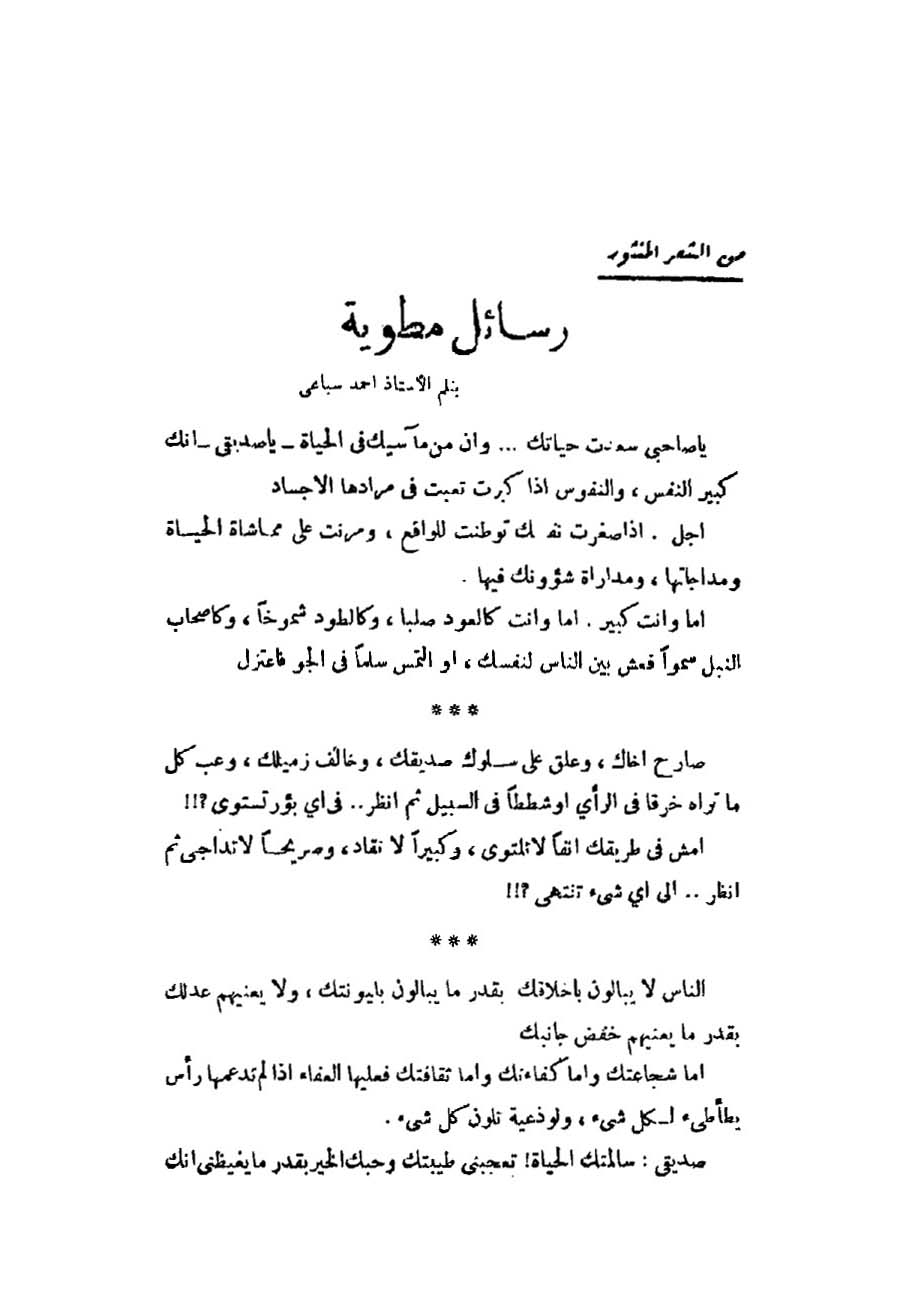 من الشعر المنثور
رسائل مطوية
بقلم الأستاذ احمد سباعى
ياصاحبي سعدت حياتك ... وان من مآسيك فى الحياة ـ ياصديقى ـ انك
كبير النفس ، والنفوس اذا كبرت تعبت فى مرادها الاجساد
اجل . اذا صغرت نفسك توطنت للواقع ، ومرنت على مماشاة الحيـاة
ومداجاتها ، ومداراة شؤونك فيها .
اما وانت كبير . اما وانت كالعود صلبا ، وكالطود شموخاً ، وكاصحاب
النبل سمواً فعش بين الناس لنفسك ، او التمس سلماً فى الجو فاعتزل
* * *
صارح اخاك ، وعلق على سـلوك صديقك ، وخالف زميلك ، وعب كل
ما تراه خرقا فى الرأي او شططاً فى السبيل ثم انظر .. فى اي بؤر تستوى ؟!!
امش فى طريقك انفاً لا تلتوى ، وكبيراً لا نقاد ، وصريحـاً لا تداجى ثم
انظر .. الى اي شىء تنتهى ؟!!
* * *
الناس لا يبالون باخلاقك بقدر ما يبالون بليونتك ، ولا يعنيهم عدلك
بقدر ما يعنيهم خفض جانبك
اما شجاعتك واما كفاءتك واما ثقافتك فعليها العفاء اذا لم تدعمها رأس
يطأطىء لـكل شىء ، ولوذعية تلون كل شىء .
صديقى : سالمتك الحياة ! تعجبنى طيبتك وحبك الخير بقدر ما يغيظنى انك